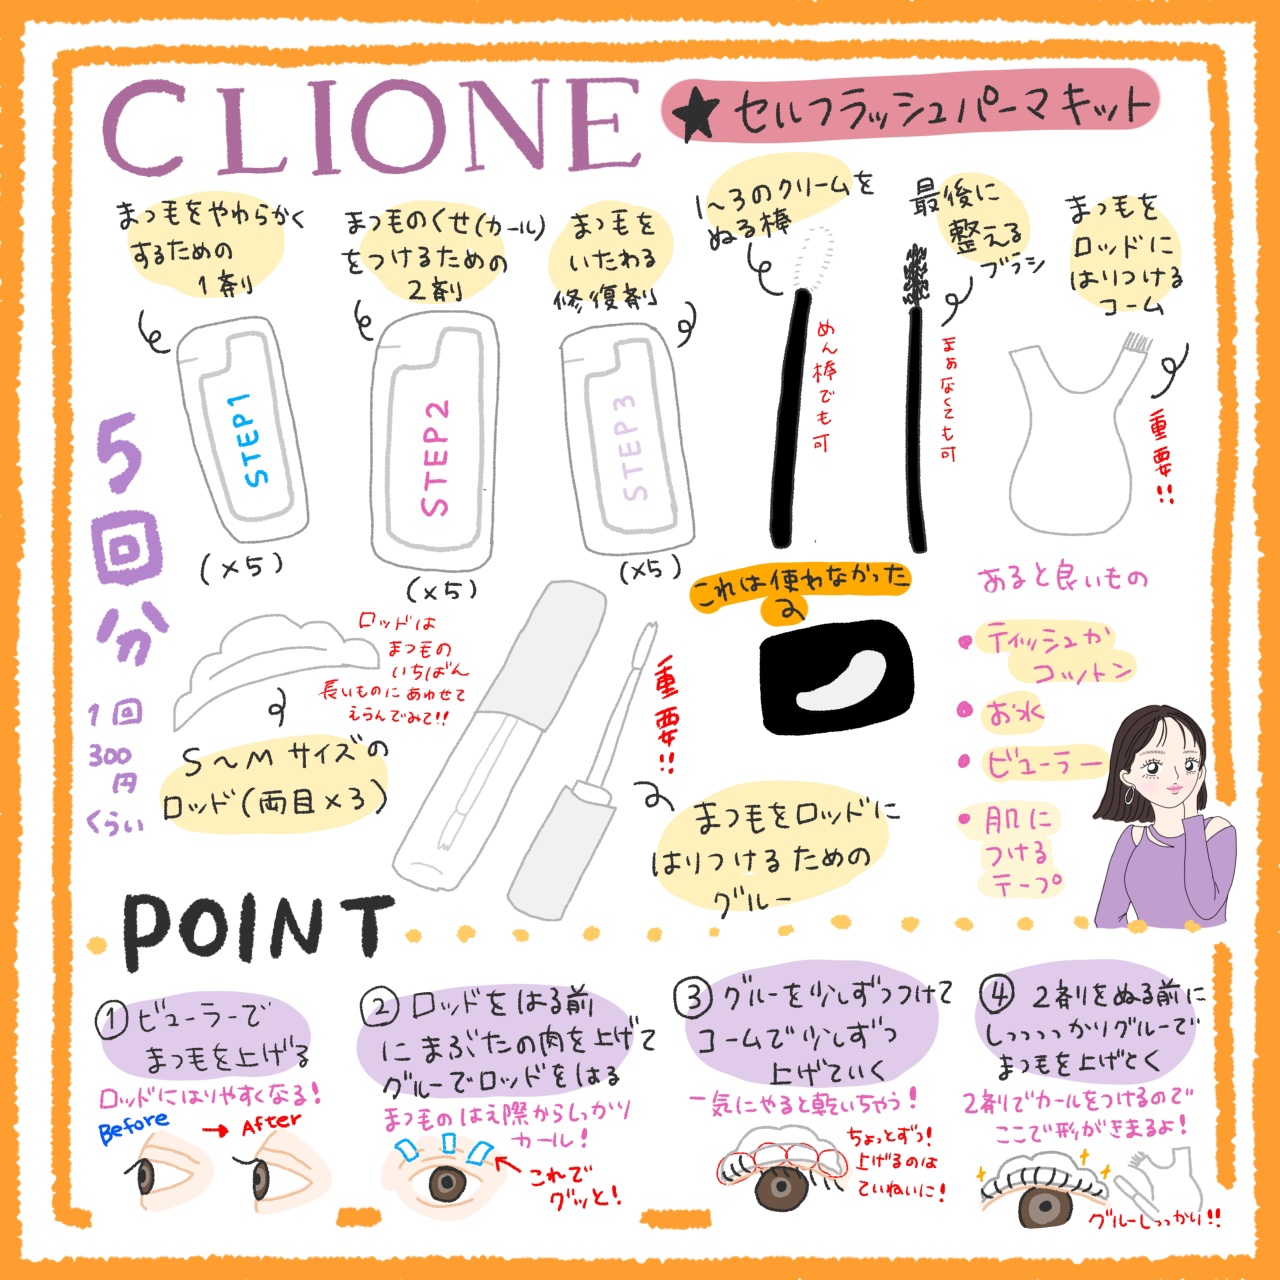 CLIONE
★セルフラッシュパーマキット
まつ毛をやわらかく
するための
1剤
まつものくせ(カール)
をつけるための
2剤
まつ毛を
いたわる
修復剤
1〜3のクリームを
ぬる棒
最後に
整える
ブラシ
まつ毛を
ロッドに
はりつける
コーム
めん棒でも可
まぁなくても可
重要!!
STEP1
STEP2
STEP3
(×5)
(×5)
(×5)
5
回
分
1回
300
円
くらい
ロッドは
まつ毛の
いちばん
長いものにあわせて
えらんでみて!!
S〜Mサイズの
ロッド(両目×3)
重要!!
これは使わなかった
まつ毛をロッドに
はりつけるための
グルー
あると良いもの
・ティッシュか
コットン
・お水
・ビューラー
・肌に
つける
テープ
POINT
①ビューラーで
まつ毛を上げる
ロッドにはりやすくなる!
Before
→After
②ロッドをはる前
にまぶたの肉を上げて
グルーでロッドをはる
まつものはえ際からしっかり
カール!
これで
グッと!
③グルーを少しずつつけて
コームで少しずつ
上げていく
一気にやると乾いちゃう!
ちょっとずつ!
上げるのは
ていねいに!
④2剤をぬる前に
しっっっっかりグルーで
まつ毛を上げとく
2剤でカールをつけるので
ここで形がきまるよ!
グルーしっっかり!!